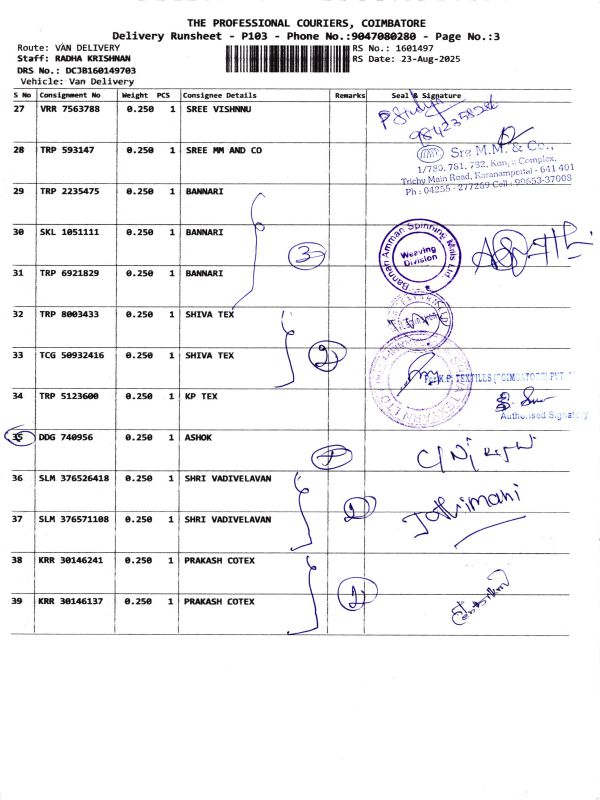 THE PROFESSIONAL COURIERS, COIMBATORE
Delivery Runsheet - P103 - Phone No.:9047080280 - Page No.:3
Route: VAN DELIVERY
RS No.: 1601497
Staff: RADHA KRISHNAN
RS Date: 23-Aug-2025
DRS No.: DCJB160149703
Vehicle: Van Delivery
S No Consignment No Weight PCS Consignee Details Remarks Seal & Signature
27 VRR 7563788 0.250 1 SREE VISHNNU
28 TRP 593147 0.250 1 SREE MM AND CO
Sre M.M. & Co.,
1/780, 781, 732, Complex,
Trichy Main Road, Karanampettai - 641 401
Ph : 04255 - 277269 Cell : 99653-37003
29 TRP 2235475 0.250 1 BANNARI
30 SKL 1051111 0.250 1 BANNARI
3
Bannari Amman Spinning Mills Ltd
Weaving
Division
31 TRP 6921829 0.250 1 BANNARI
32 TRP 8003433 0.250 1 SHIVA TEX
33 TCG 50932416 0.250 1 SHIVA TEX
2
K.P. TEXTILES (COIMBATORE) PVT.
34 TRP 5123600 0.250 1 KP TEX
Authorised Signatory
35 DDG 740956 0.250 1 ASHOK
1
36 SLM 376526418 0.250 1 SHRI VADIVELAVAN
2
Jothimani
37 SLM 376571108 0.250 1 SHRI VADIVELAVAN
38 KRR 30146241 0.250 1 PRAKASH COTEX
2
39 KRR 30146137 0.250 1 PRAKASH COTEX